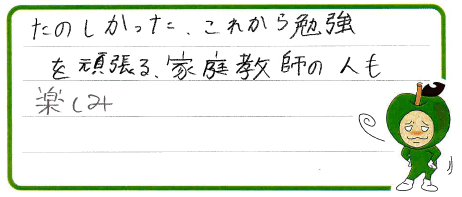 たのしかった、これから勉強
を頑張る、家庭教師の人も
楽しみ